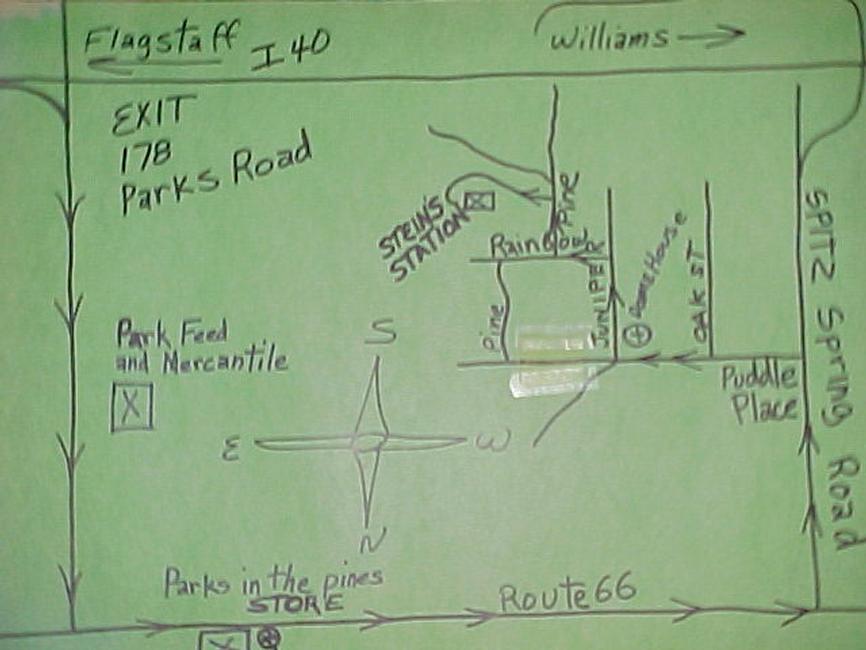 Flagstaff I 40
Williams
EXIT
178
Parks Road
STEIN'S
STATION
Pine
Rainbow
JUNIPE
OAK ST
Pine
SPITZ Spring Road
Park Feed
and Mercantile
X
Puddle
Place
S
E
W
N
Parks in the pines
STORE
Route 66
X